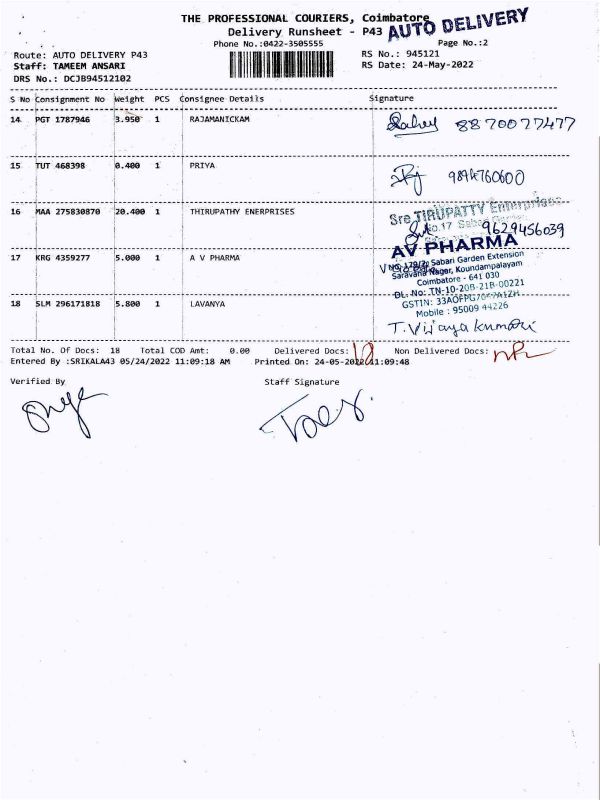 THE PROFESSIONAL COURIERS, Coimbatore
AUTO DELIVERY
Delivery Runsheet - P43
Phone No.:0422-3505555
Page No.:2
Route: AUTO DELIVERY P43
RS No.: 945121
Staff: TAMEEM ANSARI
RS Date: 24-May-2022
DRS No.: DCJB94512102
S No Consignment No Weight PCS Consignee Details Signature
14 PGT 1787946 3.950 1 RAJAMANICKAM
8870077477
15 TUT 468398 0.400 1 PRIYA
9894760600
16 MAA 275830870 20.400 1 THIRUPATHY ENERPRISES
Sre TIRUPATTY Enterprises
No.17 Sabari Garden
9629456039
17 KRG 4359277 5.000 1 A V PHARMA
AV PHARMA
Sabari Garden Extension
Saravana Nagar, Koundampalayam
Coimbatore - 641 030
DL. No: TN-10-20B-21B-00221
GSTIN:
Mobile : 95009 44226
18 SLM 296171818 5.800 1 LAVANYA
T. Vijaya kumari
Total No. Of Docs: 18 Total COD Amt: 0.00 Delivered Docs: Non Delivered Docs:
Entered By :SRIKALA43 05/24/2022 11:09:18 AM Printed On: 24-05-2022 11:09:48
Verified By Staff Signature